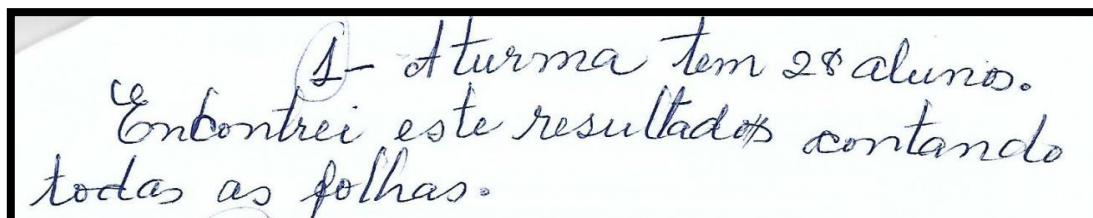 1- A turma tem 28 alunos.
Encontrei este resultados contando
todas as folhas.